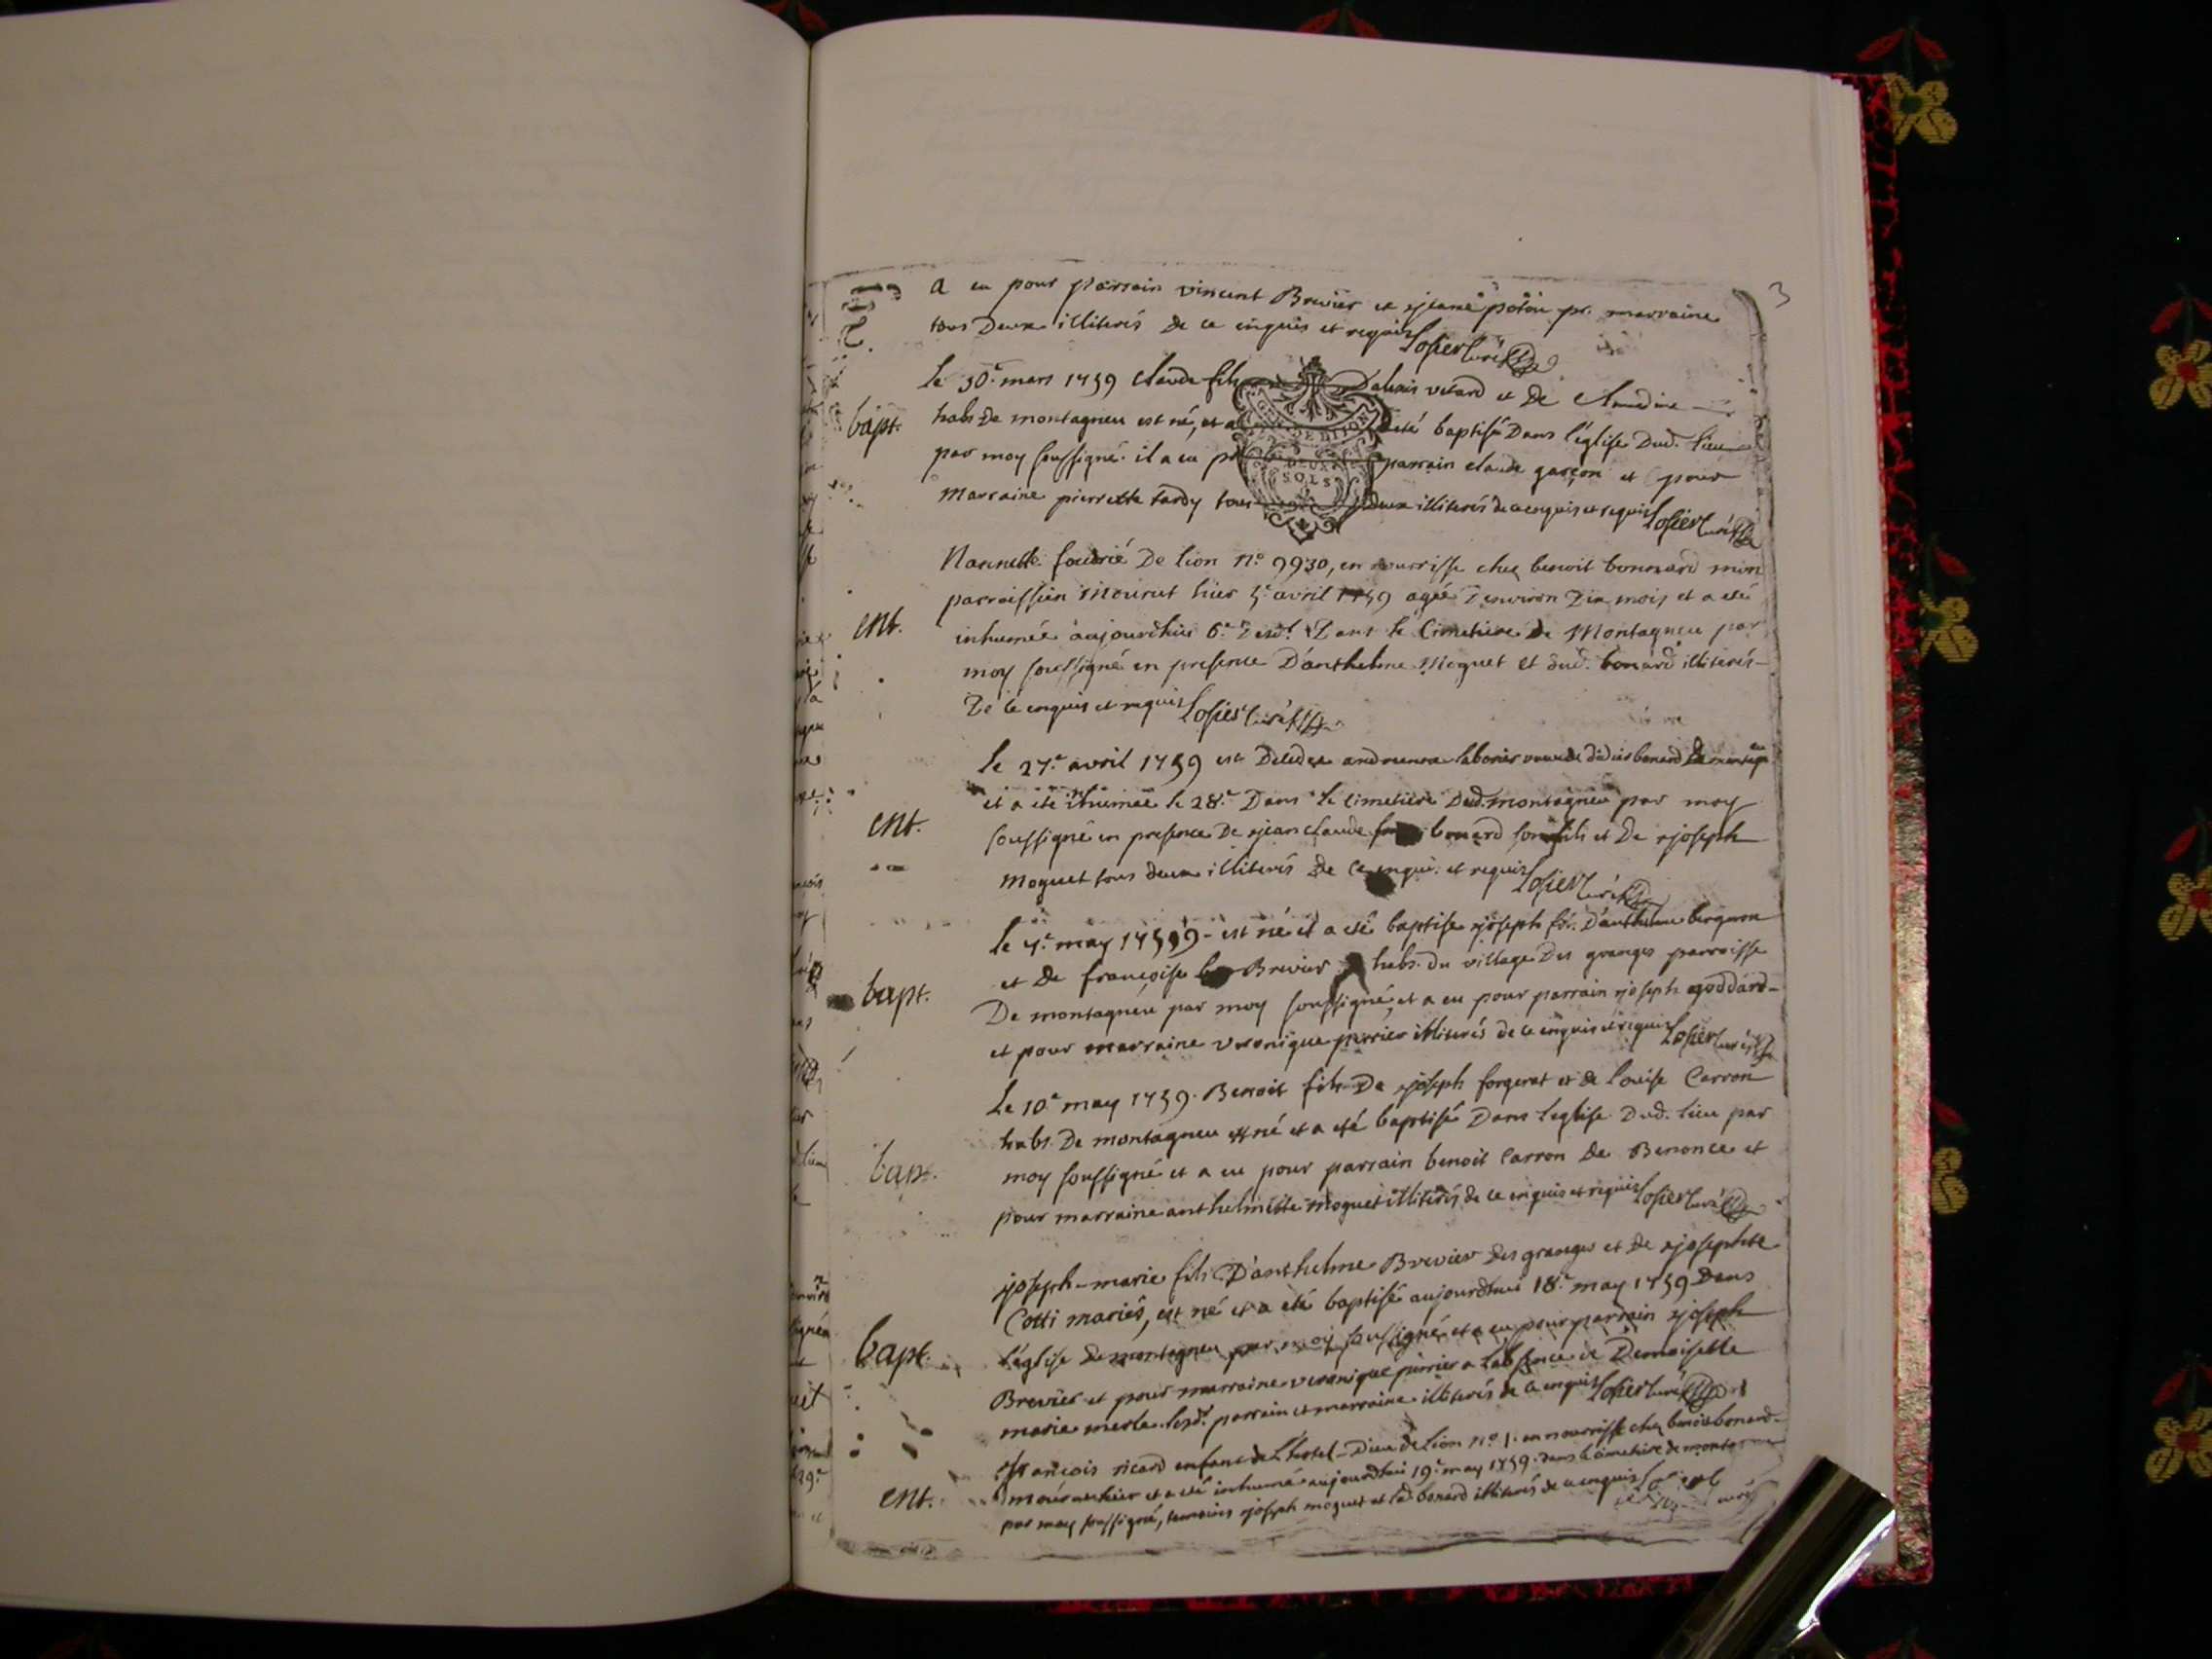 3
a eu pour parrain vincent Brevier et jeane potin pr. marraine
tous Deux illiterés De ce enquis et requis Losier curé
le 30.e mars 1759 claude fils vitard et De Claudine
GEN. DE DIJON
DEUX
SOLS
bapt.
habs De montagneu est né, et a eté baptisé Dans l'église Dud. lieu
par moy soussigné. il a eu pr parrain claude garçon et pour
Marraine pierrette tardy tous deux illiterés de ce enquis et requis Losier curé
Nannette De lion n.o 9930, en nourrisse chez benoit bonnard mon
parroissien Mourut hier 5.e avril 1759 agée D'environ Dix mois et a eté
ent.
inhumée aujourdhui 6.e Dans le Cimetiere De Montagneu par
moy soussigné en presence D'anthelme Moguet et dud. bonard illiterés
De ce enquis et requis Losier curé
le 27.e avril 1759 est Decedée laborier veuve de didier bonard De
et a eté inhumée le 28.e Dans le Cimetiere Dud. montagneu par moy
ent.
soussigné en presence De jean claude bonard son fils et De joseph
Moguet tous deux illiterés De ce enquis et requis Losier curé
le 4.e may 1759 est né et a eté baptisé joseph fils D'anthelme bergeron
et De françoise Brevier habs. Du village Des granges parroisse
bapt.
De montagneu par moy soussigné, et a eu pour parrain joseph goddard
et pour marraine veronique perrier illiterés de ce enquis et requis Losier curé
Le 10.e may 1759. Benoit fils De joseph forgerat et de louise Carron
habs. De montagneu est né et a eté baptisé Dans l'eglise Dud. lieu par
bapt.
moy soussigné et a eu pour parrain benoit Carron De Benonce et
pour marraine anthelmette moguet illiterés de ce enquis et requis Losier curé
joseph-marie fils D'anthelme Brevier Des granges et De josephte
Cotti mariés, est né et a eté baptisé aujourdhui 18.e may 1759 Dans
bapt.
l'église De montagneu par moy soussigné et a eu pour parrain joseph
Brevier et pour marraine veronique perrier a l'absence de Demoiselle
marie merle. lesd. parrain et marraine illiterés de ce enquis Losier curé
françois ricard enfant de L'hotel-Dieu de Lion n.o 1. en nourrisse chez benoit bonard
ent.
mourut hier et a eté inhumé aujourdhui 19.e may 1759. dans le cimetiere de
par moy soussigné, temoins joseph moguet et led. bonard illiterés de ce enquis curé